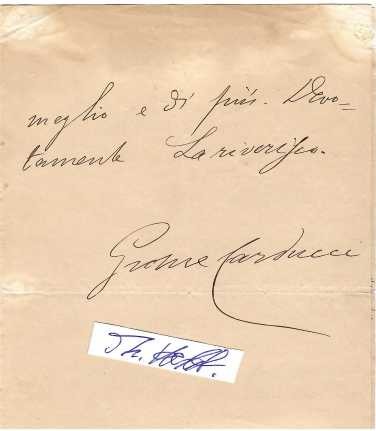 meglio e di più. Devo=
tamente La riverisco.
Giosue Carducci
Th.